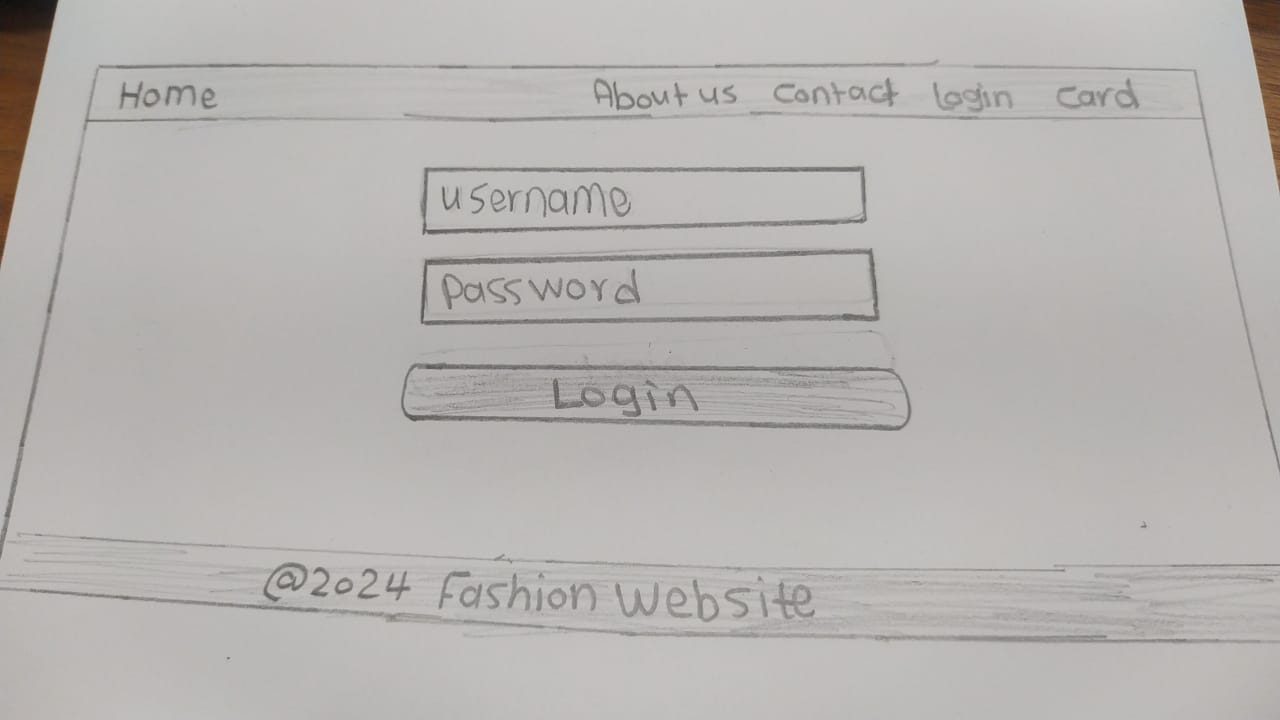 Home About us Contact Login Card
username
password
Login
@2024 Fashion Website